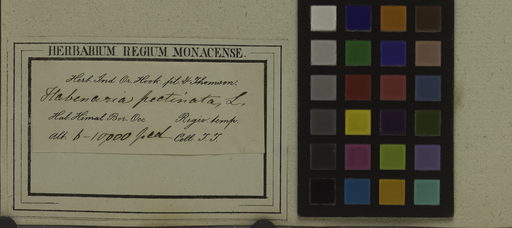 HERBARIUM REGIUM MONACENSE.
Herb. Ind. Or. Hook. fil. & Thomson.
Habenaria pectinata,
Hab. Himal. Bor. Occ. Regio temp.
Alt. 6–10,000 ped. Coll. T.T.